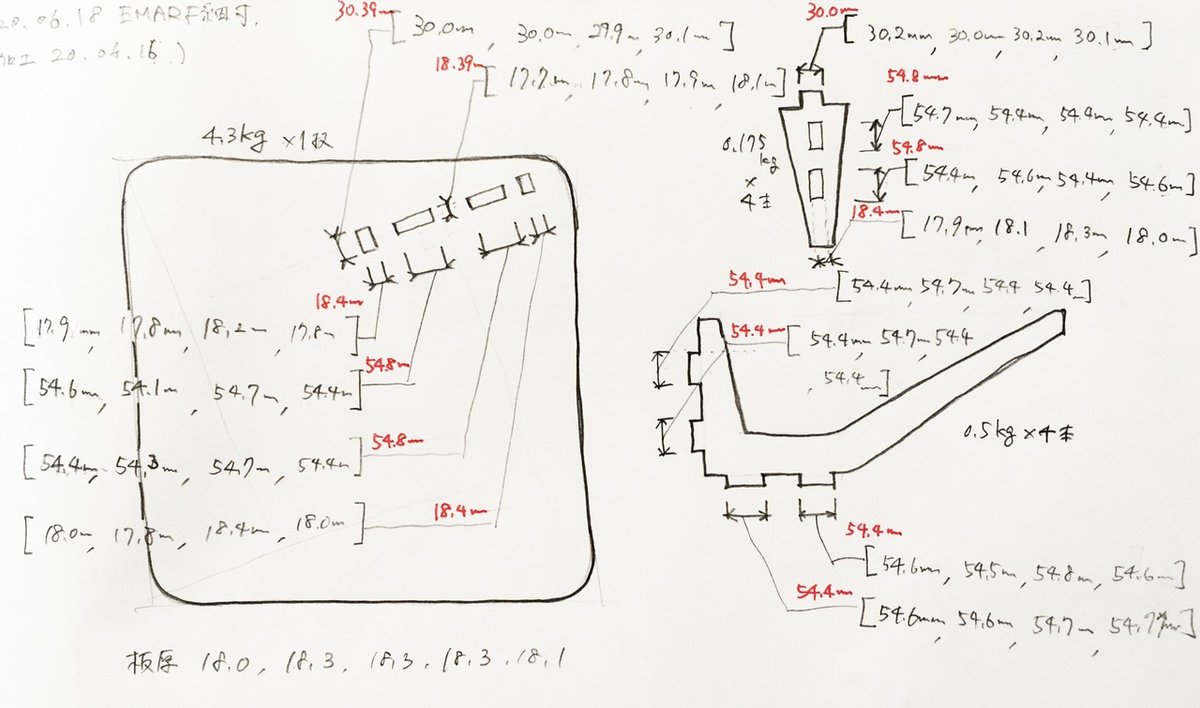 20.06.18 EMARF
20.06.15 )
30.39m
[ 30.0mm, 30.0m, 29.9m, 30.1m ]
18.39m
[ 17.7m, 17.8m, 17.9m, 18.1m ]
4.3kg ×1枚
18.4m
[ 17.9mm, 17.8m, 18.2m, 17.8m ]
54.8m
[ 54.6m, 54.1m, 54.7m, 54.4m ]
54.8m
[ 54.4m, 54.3m, 54.7m, 54.4m ]
18.4m
[ 18.0m, 17.8m, 18.4m, 18.0m ]
板厚 18.0, 18.3, 18.3, 18.3, 18.1
30.0m
[ 30.2mm, 30.0m, 30.2m, 30.1m ]
54.8mm
[ 54.7mm, 54.4m, 54.4m, 54.4m ]
0.175
kg
×
4本
54.8m
[ 54.4m, 54.6m, 54.4m, 54.6m ]
18.4m
[ 17.9m, 18.1, 18.3m, 18.0m ]
54.4m
[ 54.4mm, 54.7m, 54.4, 54.4 ]
54.4m
[ 54.4mm, 54.7m, 54.4
, 54.4 ]
0.5kg ×4本
54.4m
[ 54.6mm, 54.5m, 54.8m, 54.6m ]
54.4m
[ 54.6mm, 54.6m, 54.7m, 54.7m ]